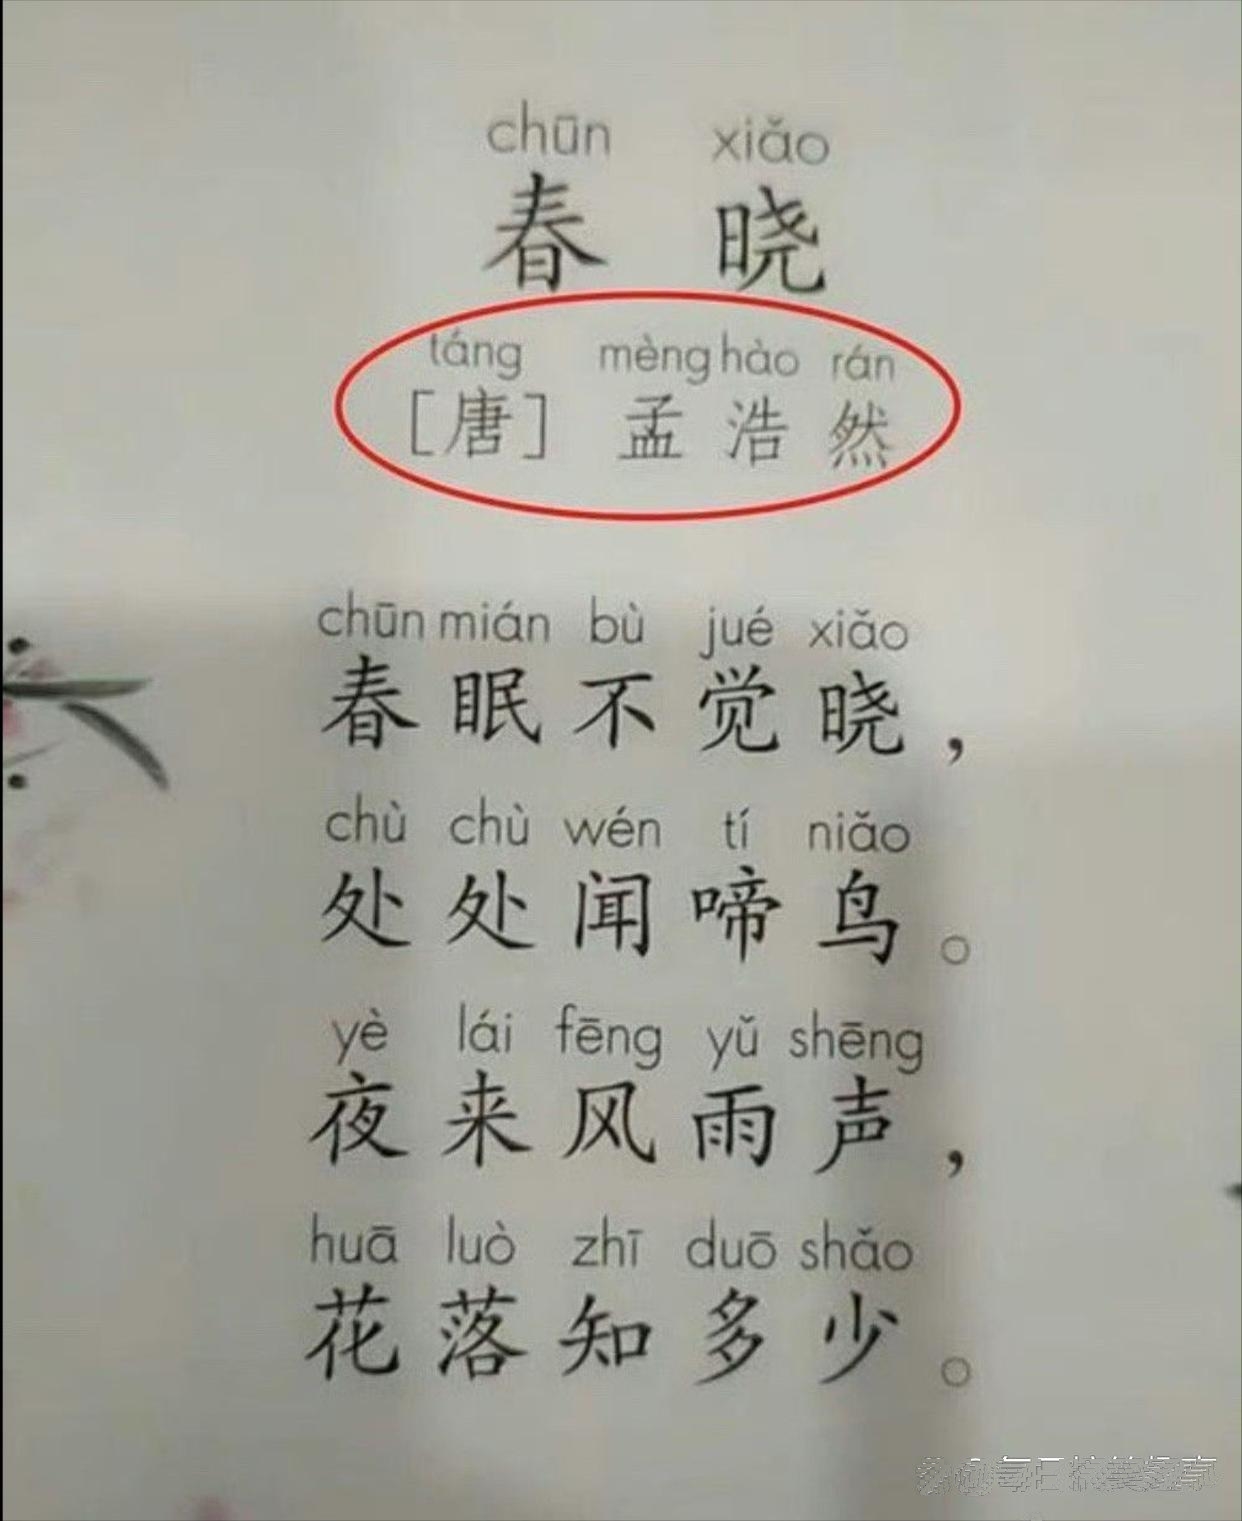 chūn xiǎo
春 晓
táng mèng hào rán
[唐] 孟 浩 然
chūn mián bù jué xiǎo
春 眠 不 觉 晓 ，
chù chù wén tí niǎo
处 处 闻 啼 鸟 。
yè lái fēng yǔ shēng
夜 来 风 雨 声 ，
huā luò zhī duō shǎo
花 落 知 多 少 。